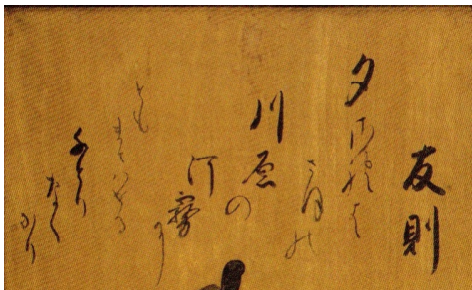 友則
夕されは
さほの
川原の
河霧に
とも
まとはせる
千とり
なく
なり